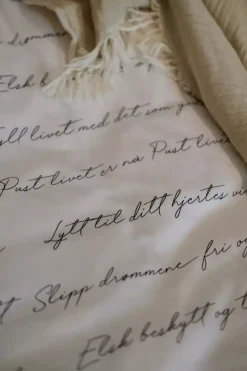 drømmene
Elsk bes
Fyll livet med det som
Pust livet er nå Pust livet
Lytt til ditt hjertes
Slipp drømmene fri og
Elsk beskytt og